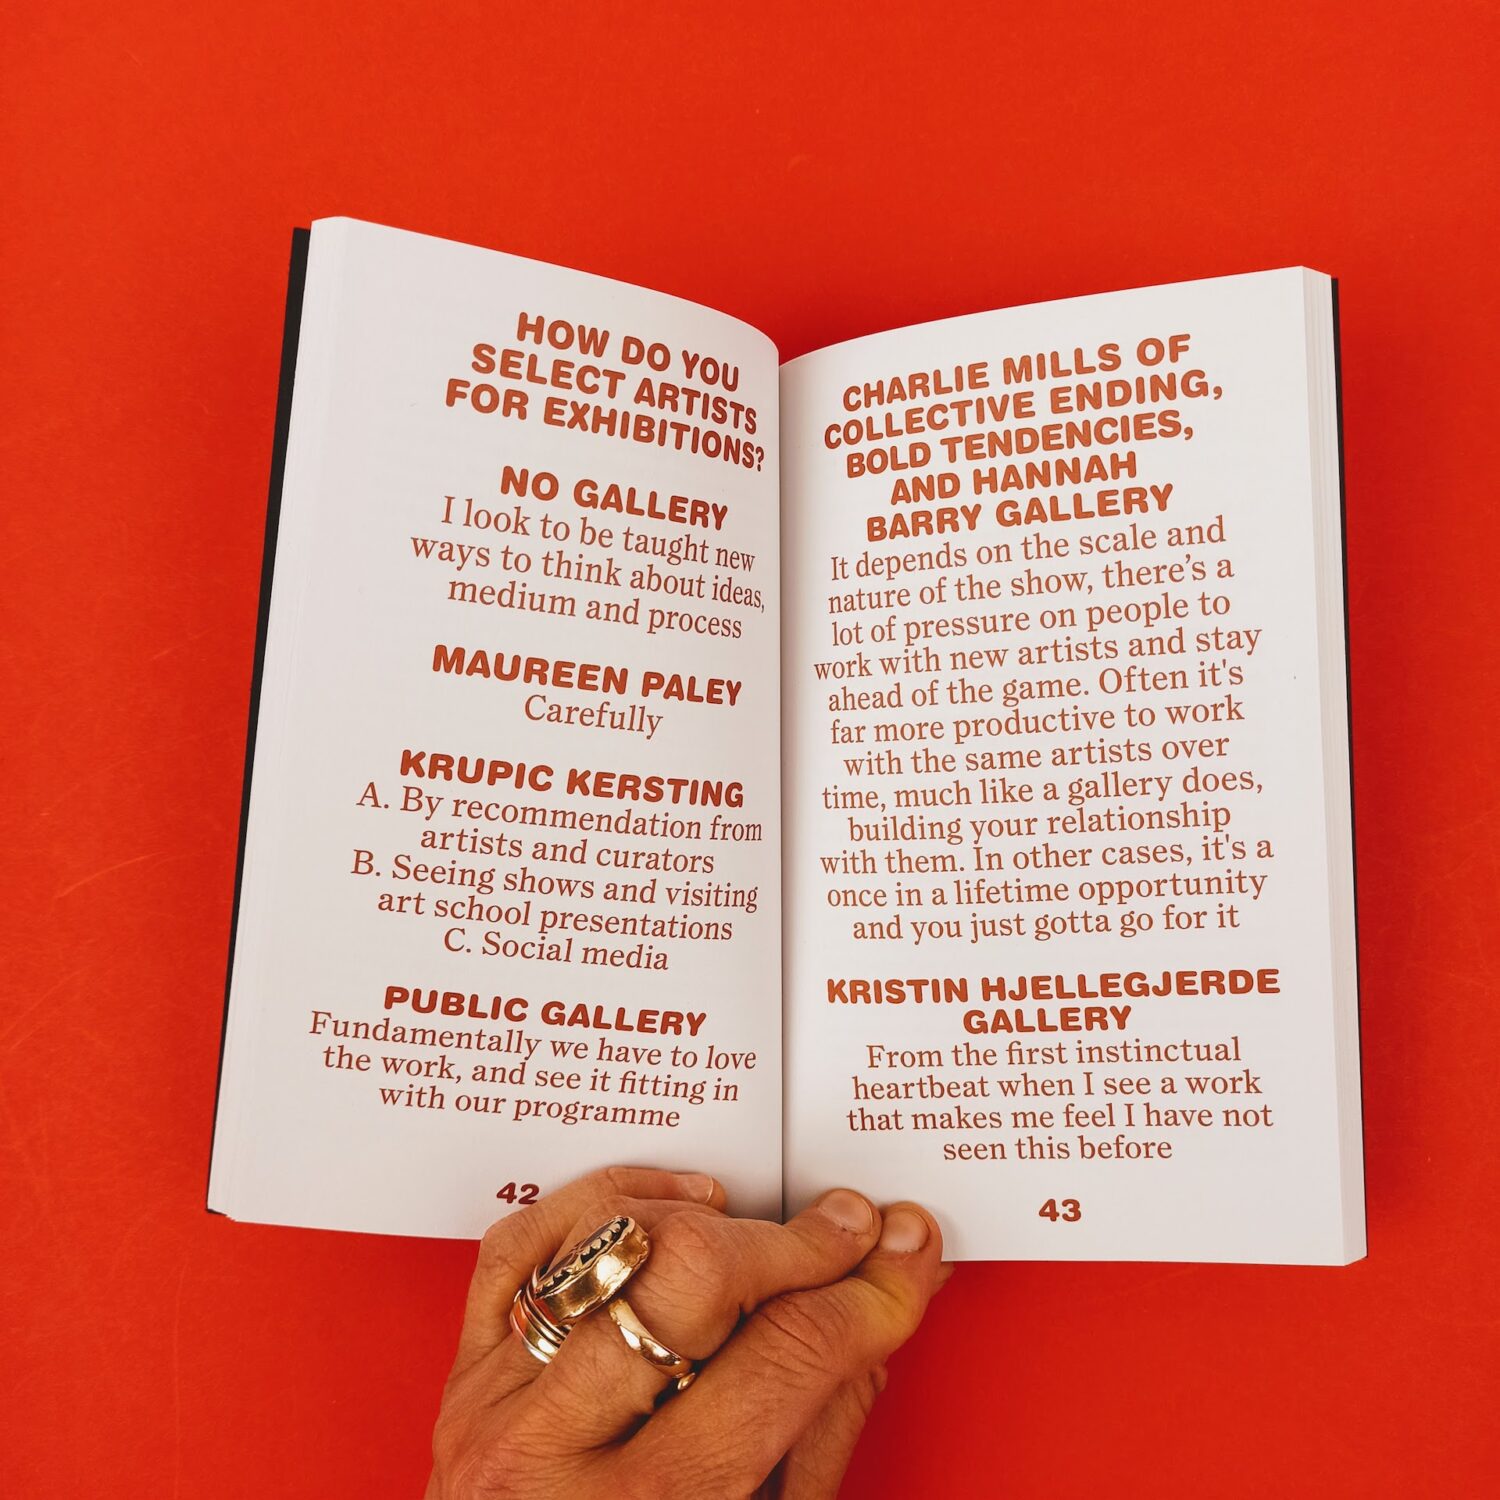 HOW DO YOU
SELECT ARTISTS
FOR EXHIBITIONS?
NO GALLERY
I look to be taught new
ways to think about ideas,
medium and process
MAUREEN PALEY
Carefully
KRUPIC KERSTING
A. By recommendation from
artists and curators
B. Seeing shows and visiting
art school presentations
C. Social media
PUBLIC GALLERY
Fundamentally we have to love
the work, and see it fitting in
with our programme
42
CHARLIE MILLS OF
COLLECTIVE ENDING,
BOLD TENDENCIES,
AND HANNAH
BARRY GALLERY
It depends on the scale and
nature of the show, there’s a
lot of pressure on people to
work with new artists and stay
ahead of the game. Often it's
far more productive to work
with the same artists over
time, much like a gallery does,
building your relationship
with them. In other cases, it's a
once in a lifetime opportunity
and you just gotta go for it
KRISTIN HJELLEGJERDE
GALLERY
From the first instinctual
heartbeat when I see a work
that makes me feel I have not
seen this before
43